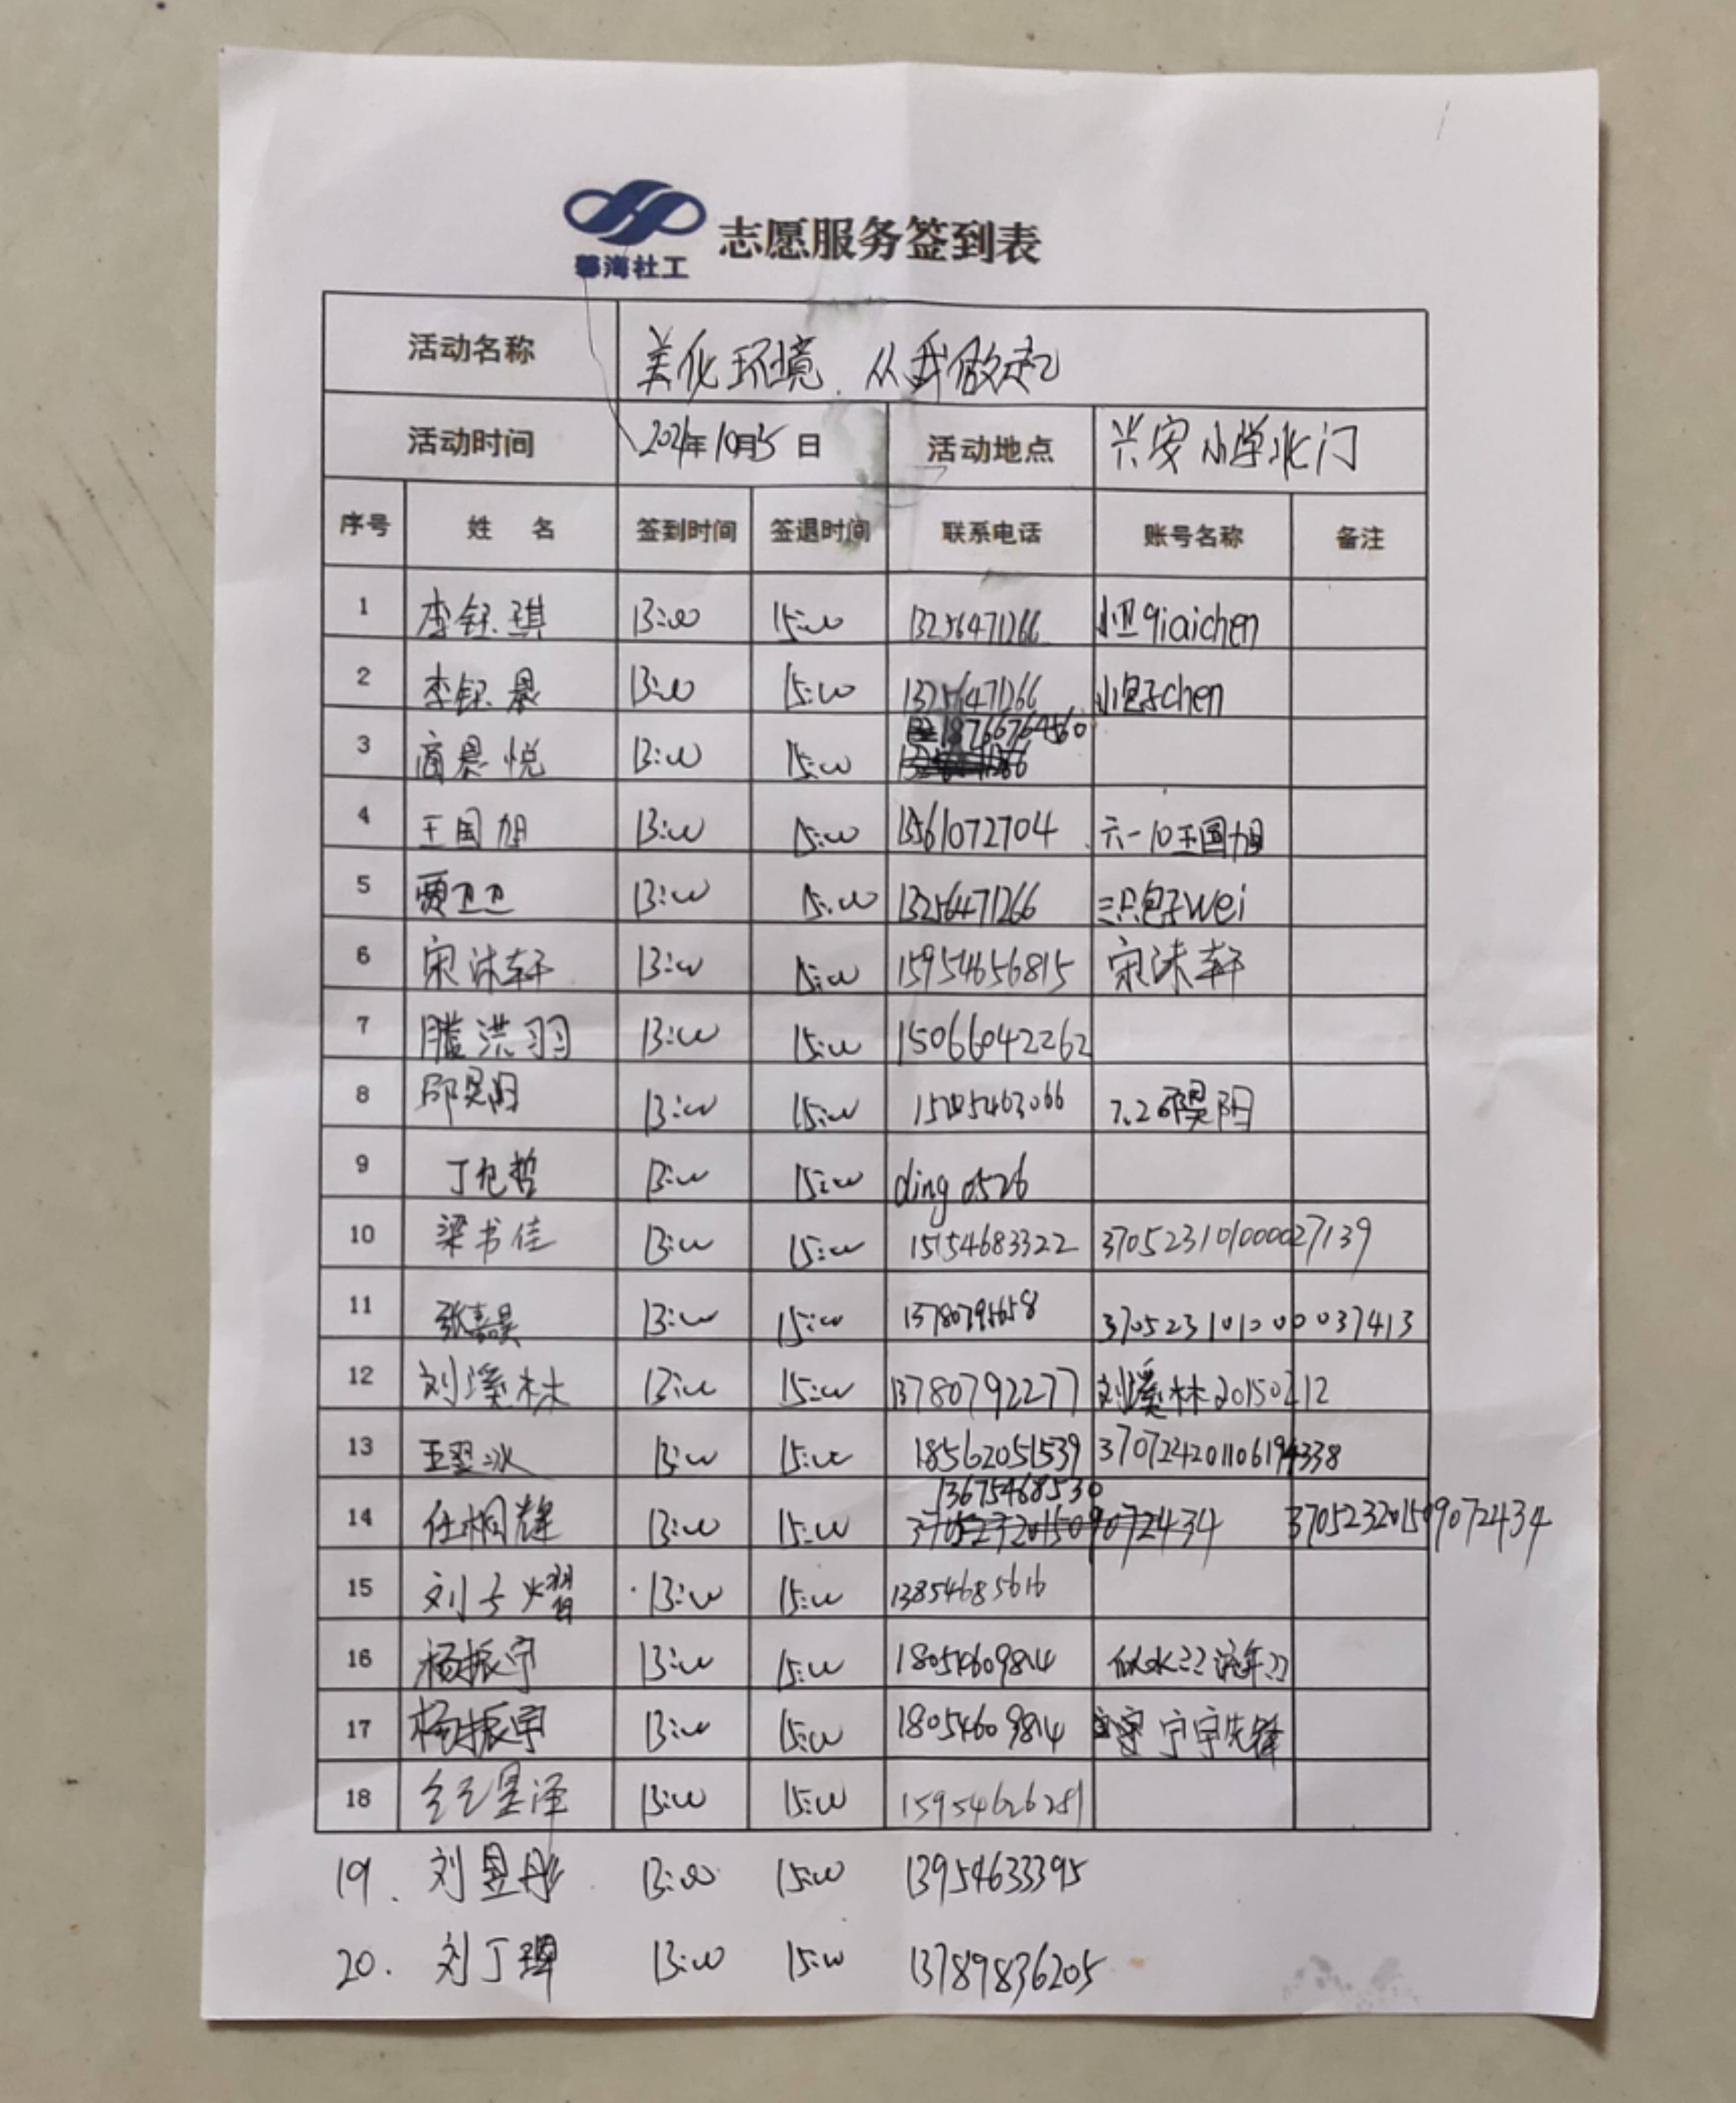 馨海社工 志愿服务签到表
活动名称 美化环境 从我做起
活动时间 2021年10月5日 活动地点 兴安小学北门
序号 姓 名 签到时间 签退时间 联系电话 账号名称 备注
1 李钰琪 13:00 15:00 13256471266 qiaichen
2 李钰晨 13:00 15:00 13256471266 小包子chen
3 商晨悦 13:00 15:00 18766764560
4 王国旭 13:00 15:00 13561072704 六一10王国旭
5 贾卫卫 13:00 15:00 13256471266 三只包子wei
6 宋沐轩 13:00 15:00 15954656815 宋沐轩
7 滕洪羽 13:00 15:00 15066042262
8 邱昊阳 13:00 15:00 7.2邱昊阳
9 丁 哲 13:00 15:00 ding 0526
10 梁书佳 13:00 15:00 15154683322 370523101000027139
11 张嘉昊 13:00 15:00
12 刘溪林 13:00 15:00 13780792277 刘溪林20150212
13 王翌冰 13:00 15:00 18562051539 370724201106194338
14 任桐辉 13:00 15:00 13675468530 370523201509072434 370523201509072434
15 刘子熠 13:00 15:00 13854685616
16 杨振宇 13:00 15:00 18054609814 似水 流年
17 杨振宇 13:00 15:00 18054609814 宁宇先锋
18 星泽 13:00 15:00 15954626281
19. 刘昱彤 13:00 15:00 13954633395
20. 刘丁琿 13:00 15:00 13789836205